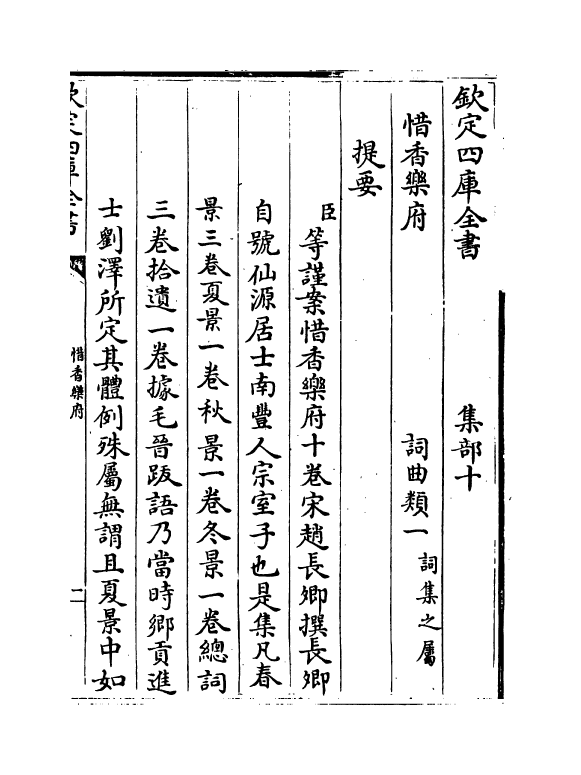 欽定四庫全書　集部十
惜香樂府　詞曲類一詞集之屬
提要
臣等謹案惜香樂府十卷宋趙長卿撰長卿
自號仙源居士南豐人宗室子也是集凡春
景三卷夏景一卷秋景一卷冬景一卷總詞
三卷拾遺一卷據毛晉跋語乃當時鄉貢進
士劉澤所定其體例殊屬無謂且夏景中如
欽定四庫全書　惜香樂府　二